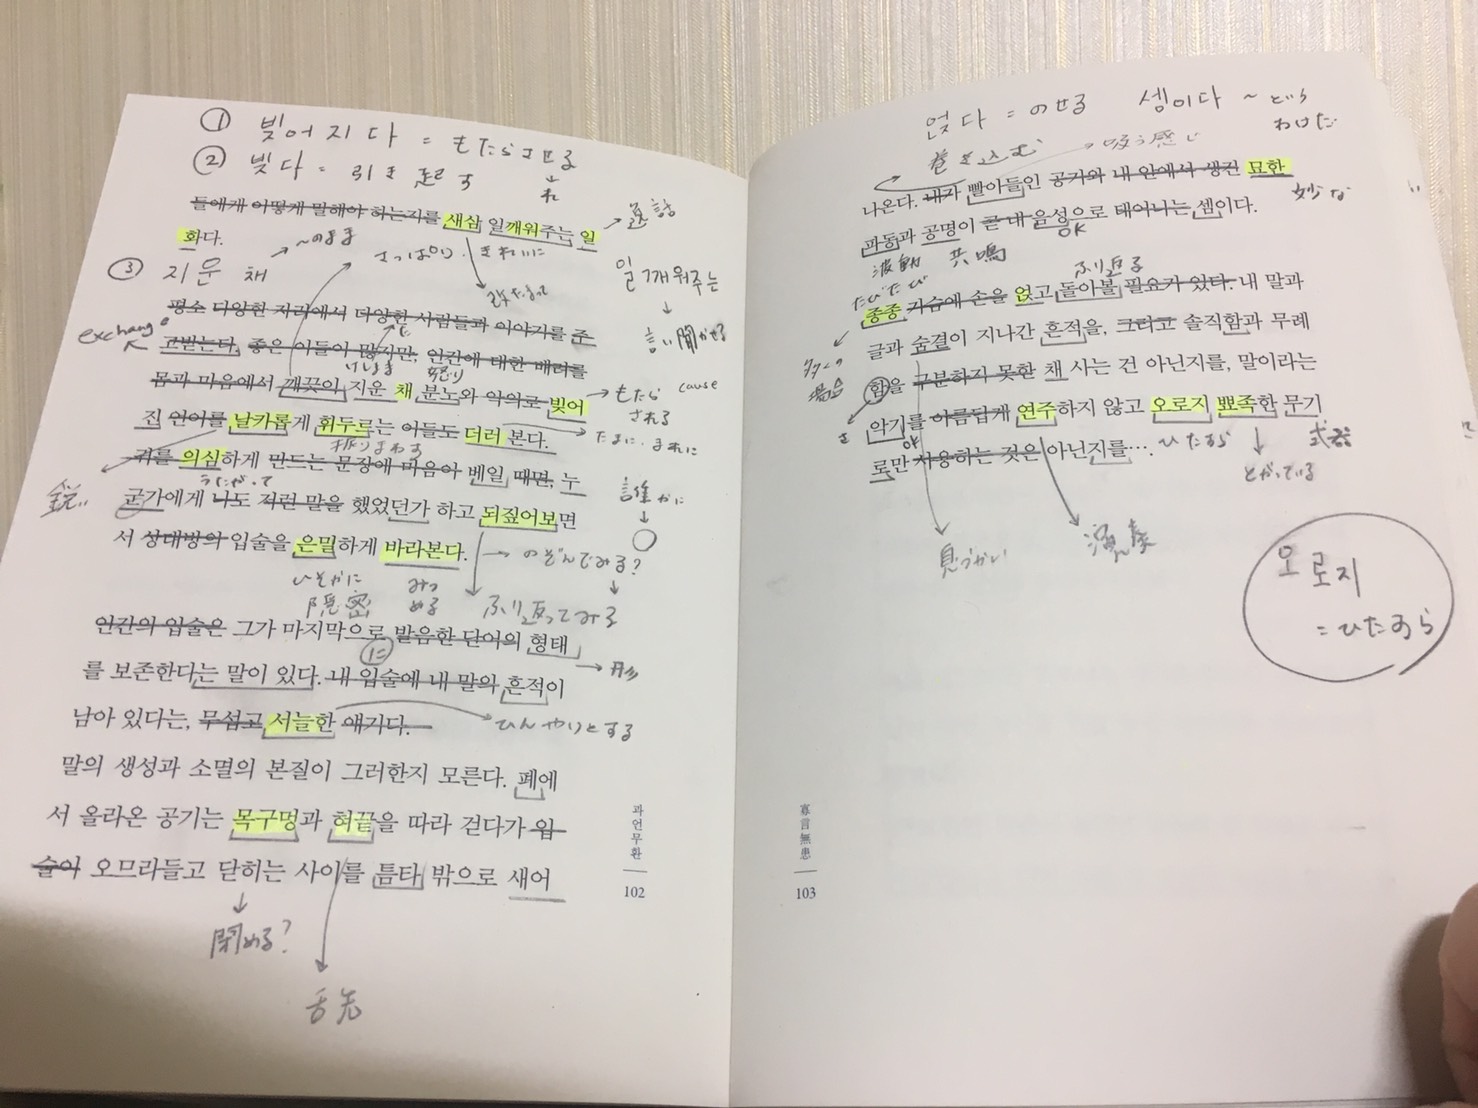 ① 빚어지다 = もたらさせる
↓
れ
② 빚다 = 引き起こす
들에게 어떻게 말해야 하는지를 새삼 일깨워주는 일
화다.
→ 逸話
さっぱり・きれいに
改たまって
③ 지운 채
→ ~のまま
일깨워주는
↓
言い聞かせる
평소 다양한 자리에서 다양한 사람들과 이야기를 주
고받는다. 좋은 이들이 많지만, 인간에 대한 배려를
exchange
怒り
몸과 마음에서 깨끗이 지운 채 분노와 악의로 빚어
→ もたらされる
cause
진 언어를 날카롭게 휘두르는 이들도 더러 본다.
たまに、まれに
振りまわす
귀를 의심하게 만드는 문장에 마음이 베일 때면, 누
うたがって
鋭い
군가에게 나도 저런 말을 했었던가 하고 되짚어보면
誰かに
↓
○
서 상대방의 입술을 은밀하게 바라본다.
→ のぞんでみる?
ひそかに
隠密
みつめる
ふり返ってみる
인간의 입술은 그가 마지막으로 발음한 단어의 형태
に
→ 形
를 보존한다는 말이 있다. 내 입술에 내 말의 흔적이
남아 있다는, 무섭고 서늘한 얘기다.
ひんやりとする
말의 생성과 소멸의 본질이 그러한지 모른다. 폐에
서 올라온 공기는 목구멍과 혀끝을 따라 걷다가 입
술이 오므라들고 닫히는 사이를 틈타 밖으로 새어
閉める?
舌先
과언무환
102
얹다 = のせる
셈이다 ~ という
わけだ
巻き込む
→ 吸う感じ
나온다. 내가 빨아들인 공기와 내 안에서 생긴 묘한
妙な
파동과 공명이 곧 내 음성으로 태어나는 셈이다.
OK
波動
共鳴
ふり返る
たびたび
종종 가슴에 손을 얹고 돌아볼 필요가 있다. 내 말과
글과 숨결이 지나간 흔적을, 그리고 솔직함과 무례
多くの
場合
함을 구분하지 못한 채 사는 건 아닌지를, 말이라는
さ
악기를 아름답게 연주하지 않고 오로지 뾰족한 무기
OK
ひたすら
武器
とがっている
로만 사용하는 것은 아닌지를….
演奏
오로지
=ひたすら
寡言無患
103